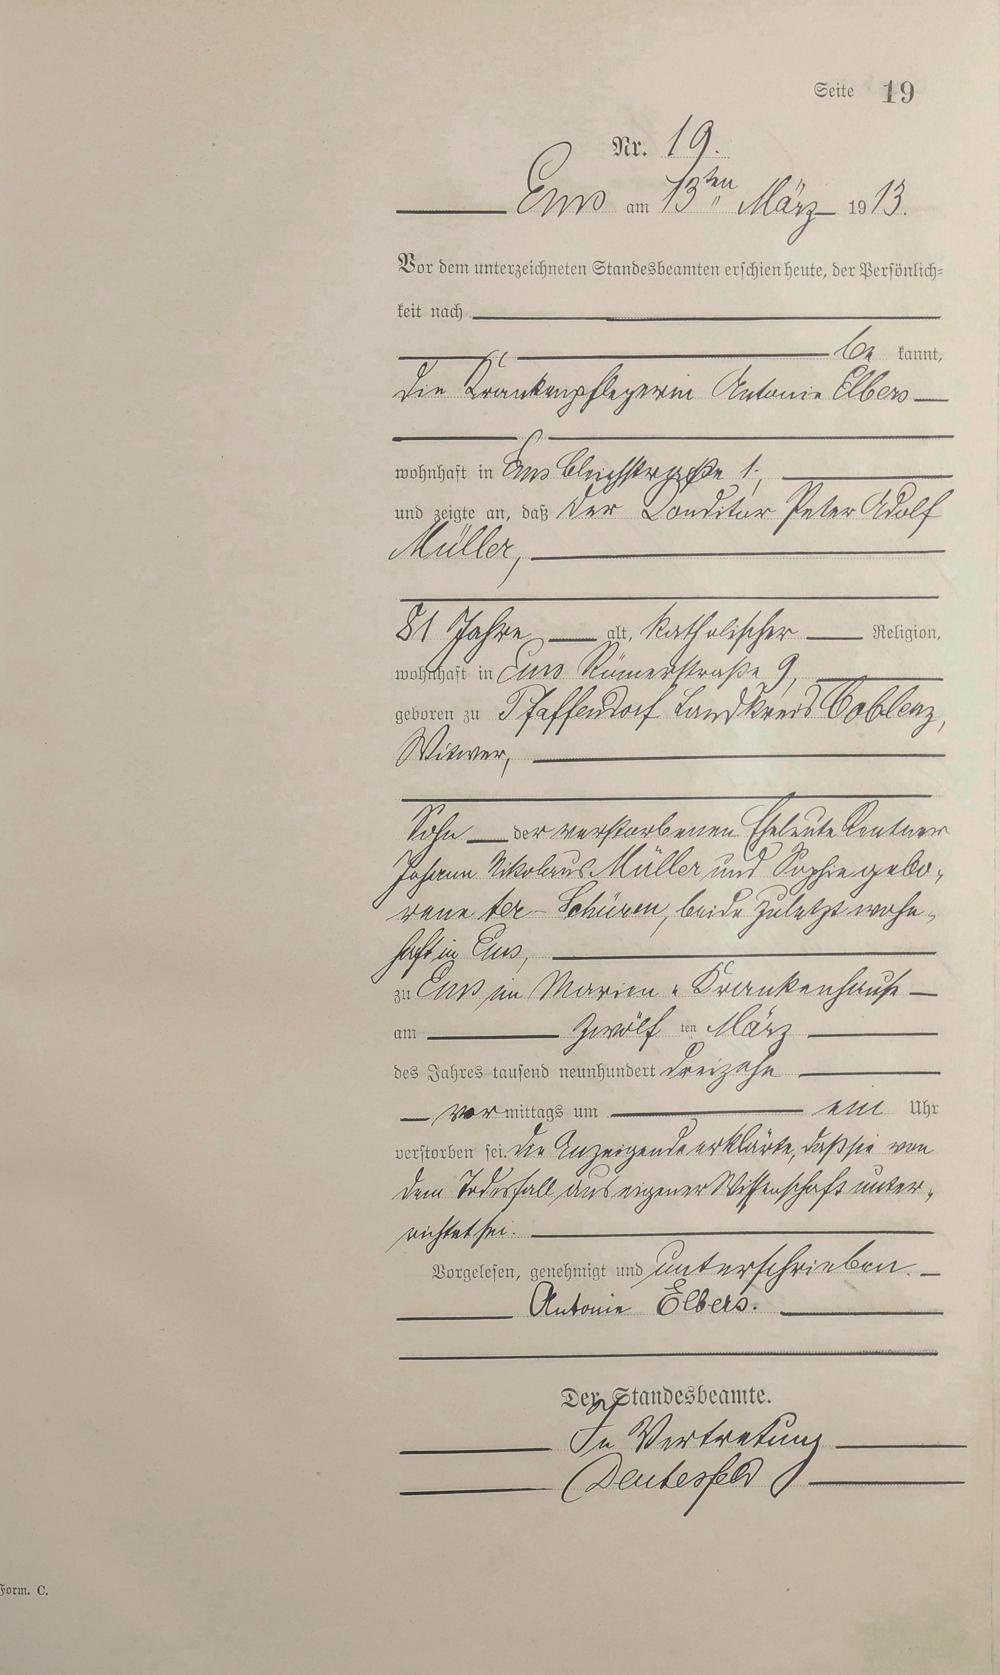 Seite 19
Nr. 19.
Ems am 13ten März 1913.
Vor dem unterzeichneten Standesbeamten erschien heute, der Persönlich-
keit nach
be kannt,
die Krankenpflegerin Antonie Elbers
wohnhaft in Ems Bleichstraße 1,
und zeigte an, daß der Conditor Peter Adolf
Müller,
81 Jahre alt, katholischer Religion,
wohnhaft in Ems Römerstraße 9,
geboren zu Pfaffendorf Landkreis Coblenz,
Witwer,
Sohn der verstorbenen Eheleute Rentner
Johann Nikolaus Müller und Sophie gebo-
rene ter-Schüren, beide zuletzt wohn-
haft in Ems,
zu Ems im Marien-Krankenhause
am zwölf ten März
des Jahres tausend neunhundert dreizehn
vor mittags um ein Uhr
verstorben sei. Die Anzeigende erklärte, daß sie von
dem Todesfall aus eigener Wissenschaft unter-
richtet sei.
Vorgelesen, genehmigt und unterschrieben.
Antonie Elbers.
Der Standesbeamte.
In Vertretung
Form. C.